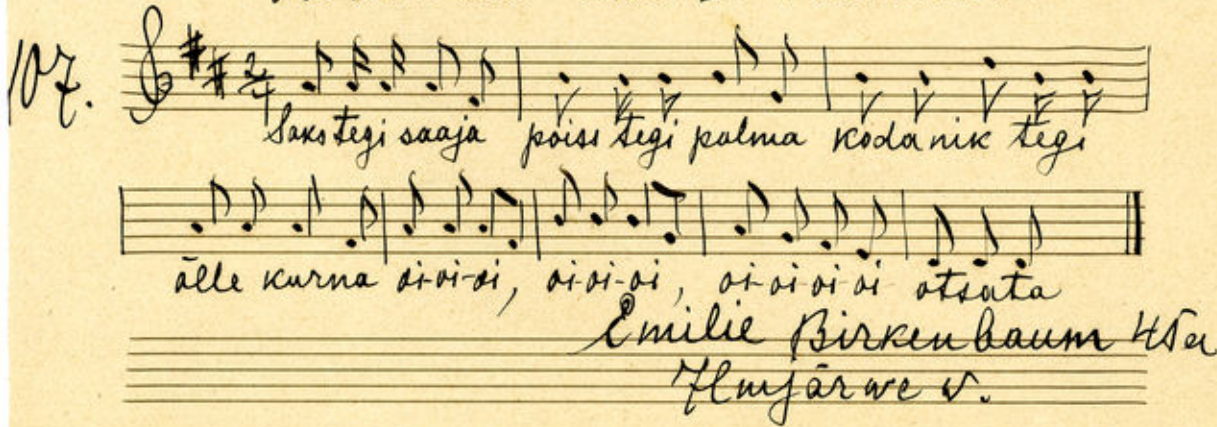 107.
2/4
Saks tegi saaja poiss tegi pulma kodanik tegi
õlle kurna oi-oi-oi, oi-oi-oi, oi-oi oi oi otsata
Emilie Birkenbaum 45 a
Ilmjärwe w.